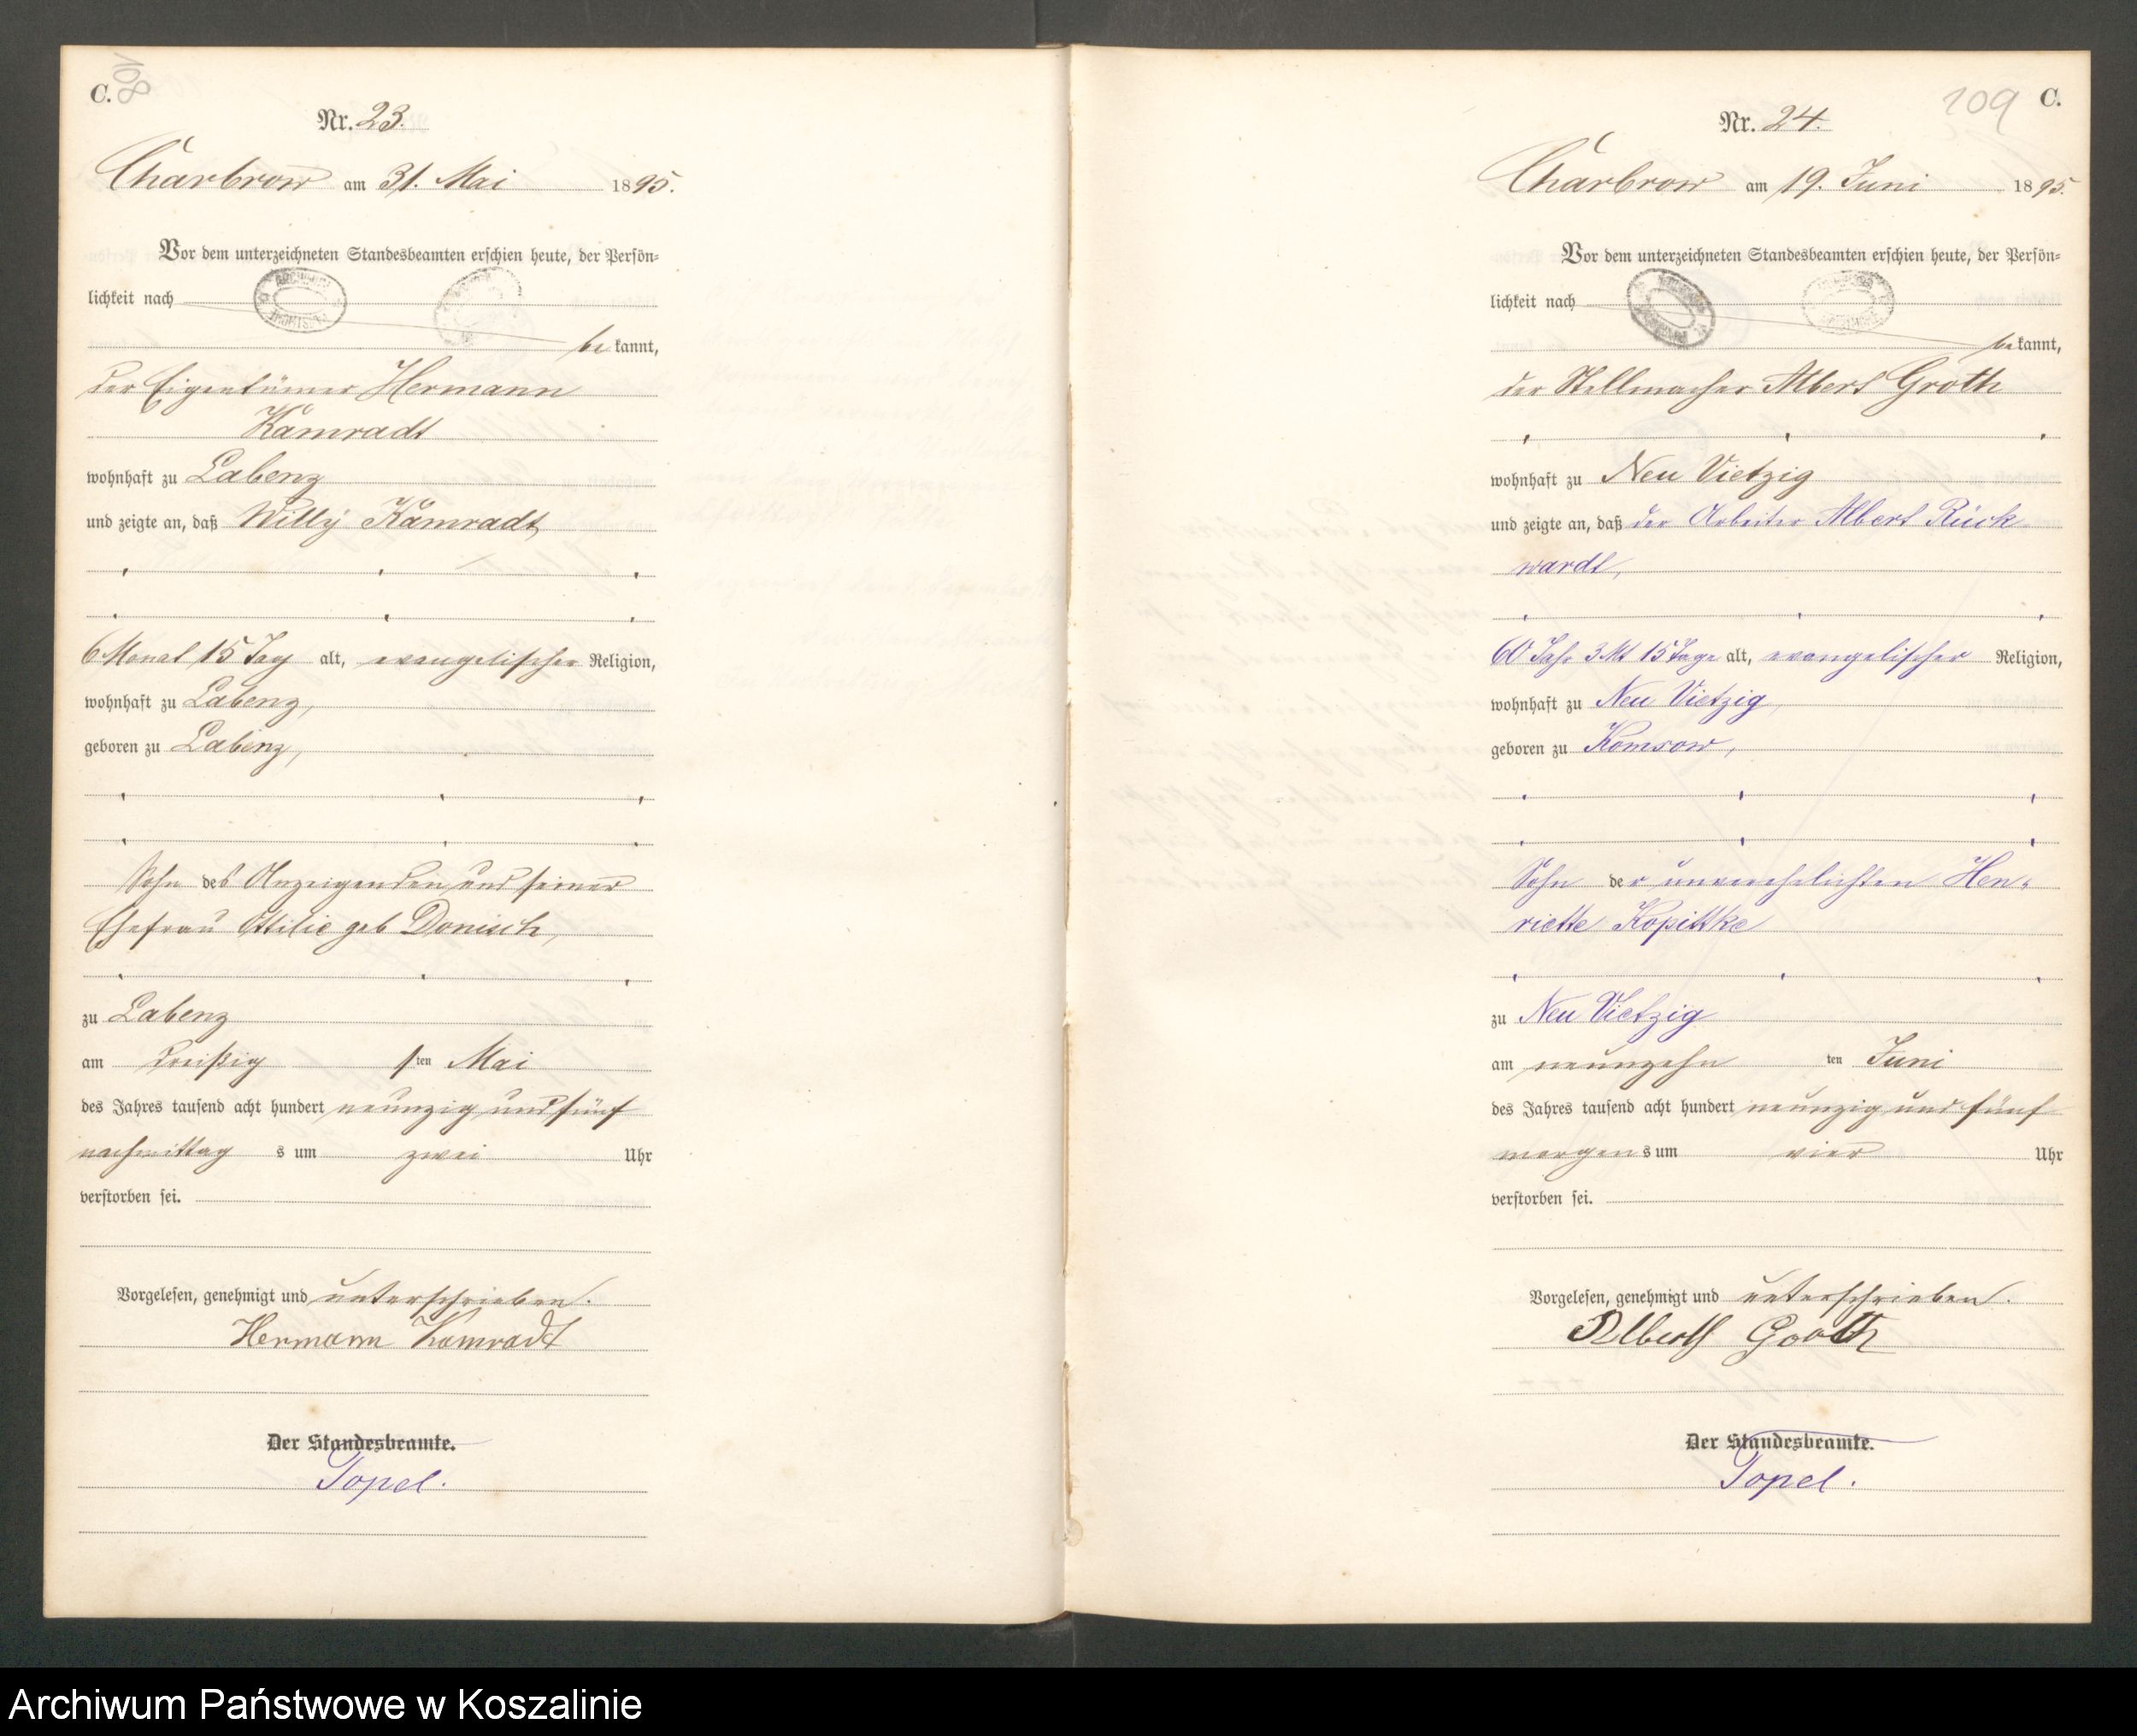 C.
108
Nr. 23.
Charbrow am 31. Mai 1895.
Vor dem unterzeichneten Standesbeamten erschien heute, der Persön-
lichkeit nach
bekannt,
der Eigentümer Hermann
Kamradt
wohnhaft zu Labenz
und zeigte an, daß Willy Kamradt
6 Monat 15 Tag alt, evangelischer Religion,
wohnhaft zu Labenz,
geboren zu Labenz,
Sohn des Anzeigenden und seiner
Ehefrau Ottilie geb Donisch,
zu Labenz
am dreißig sten Mai
des Jahres tausend acht hundert neunzig und fünf
nachmittag s um zwei Uhr
verstorben sei.
Vorgelesen, genehmigt und unterschrieben.
Hermann Kamradt
Der Standesbeamte.
Topel.
109
C.
Nr. 24.
Charbrow am 19. Juni 1895.
Vor dem unterzeichneten Standesbeamten erschien heute, der Persön-
lichkeit nach
bekannt,
der Stellmacher Albert Groth
wohnhaft zu Neu Vietzig
und zeigte an, daß der Arbeiter Albert Rück
wardt,
60 Jahr 3 Mt 15 Tage alt, evangelischer Religion,
wohnhaft zu Neu Vietzig,
geboren zu Komsow,
Sohn der unverehelichten Hen-
riette Kopittke
zu Neu Vietzig
am neunzehn ten Juni
des Jahres tausend acht hundert neunzig und fünf
morgens um vier Uhr
verstorben sei.
Vorgelesen, genehmigt und unterschrieben.
Alberth Groth
Der Standesbeamte.
Topel.
Archiwum Państwowe w Koszalinie